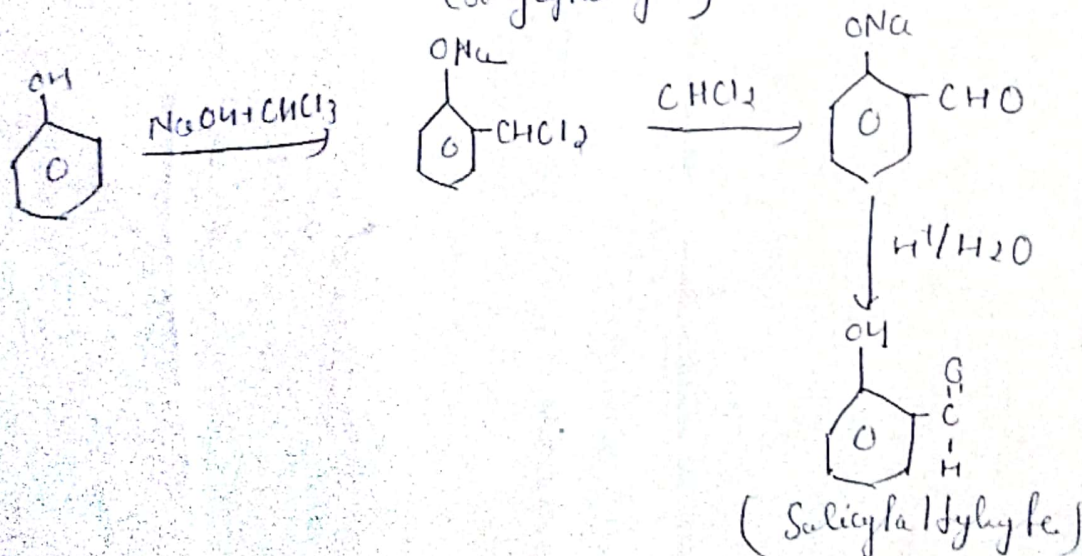 OH
NaOH+CHCl3
ONa
CHCl2
CHCl2
ONa
CHO
H+/H2O
OH
O
C
H
(Salicylaldyhyfe)